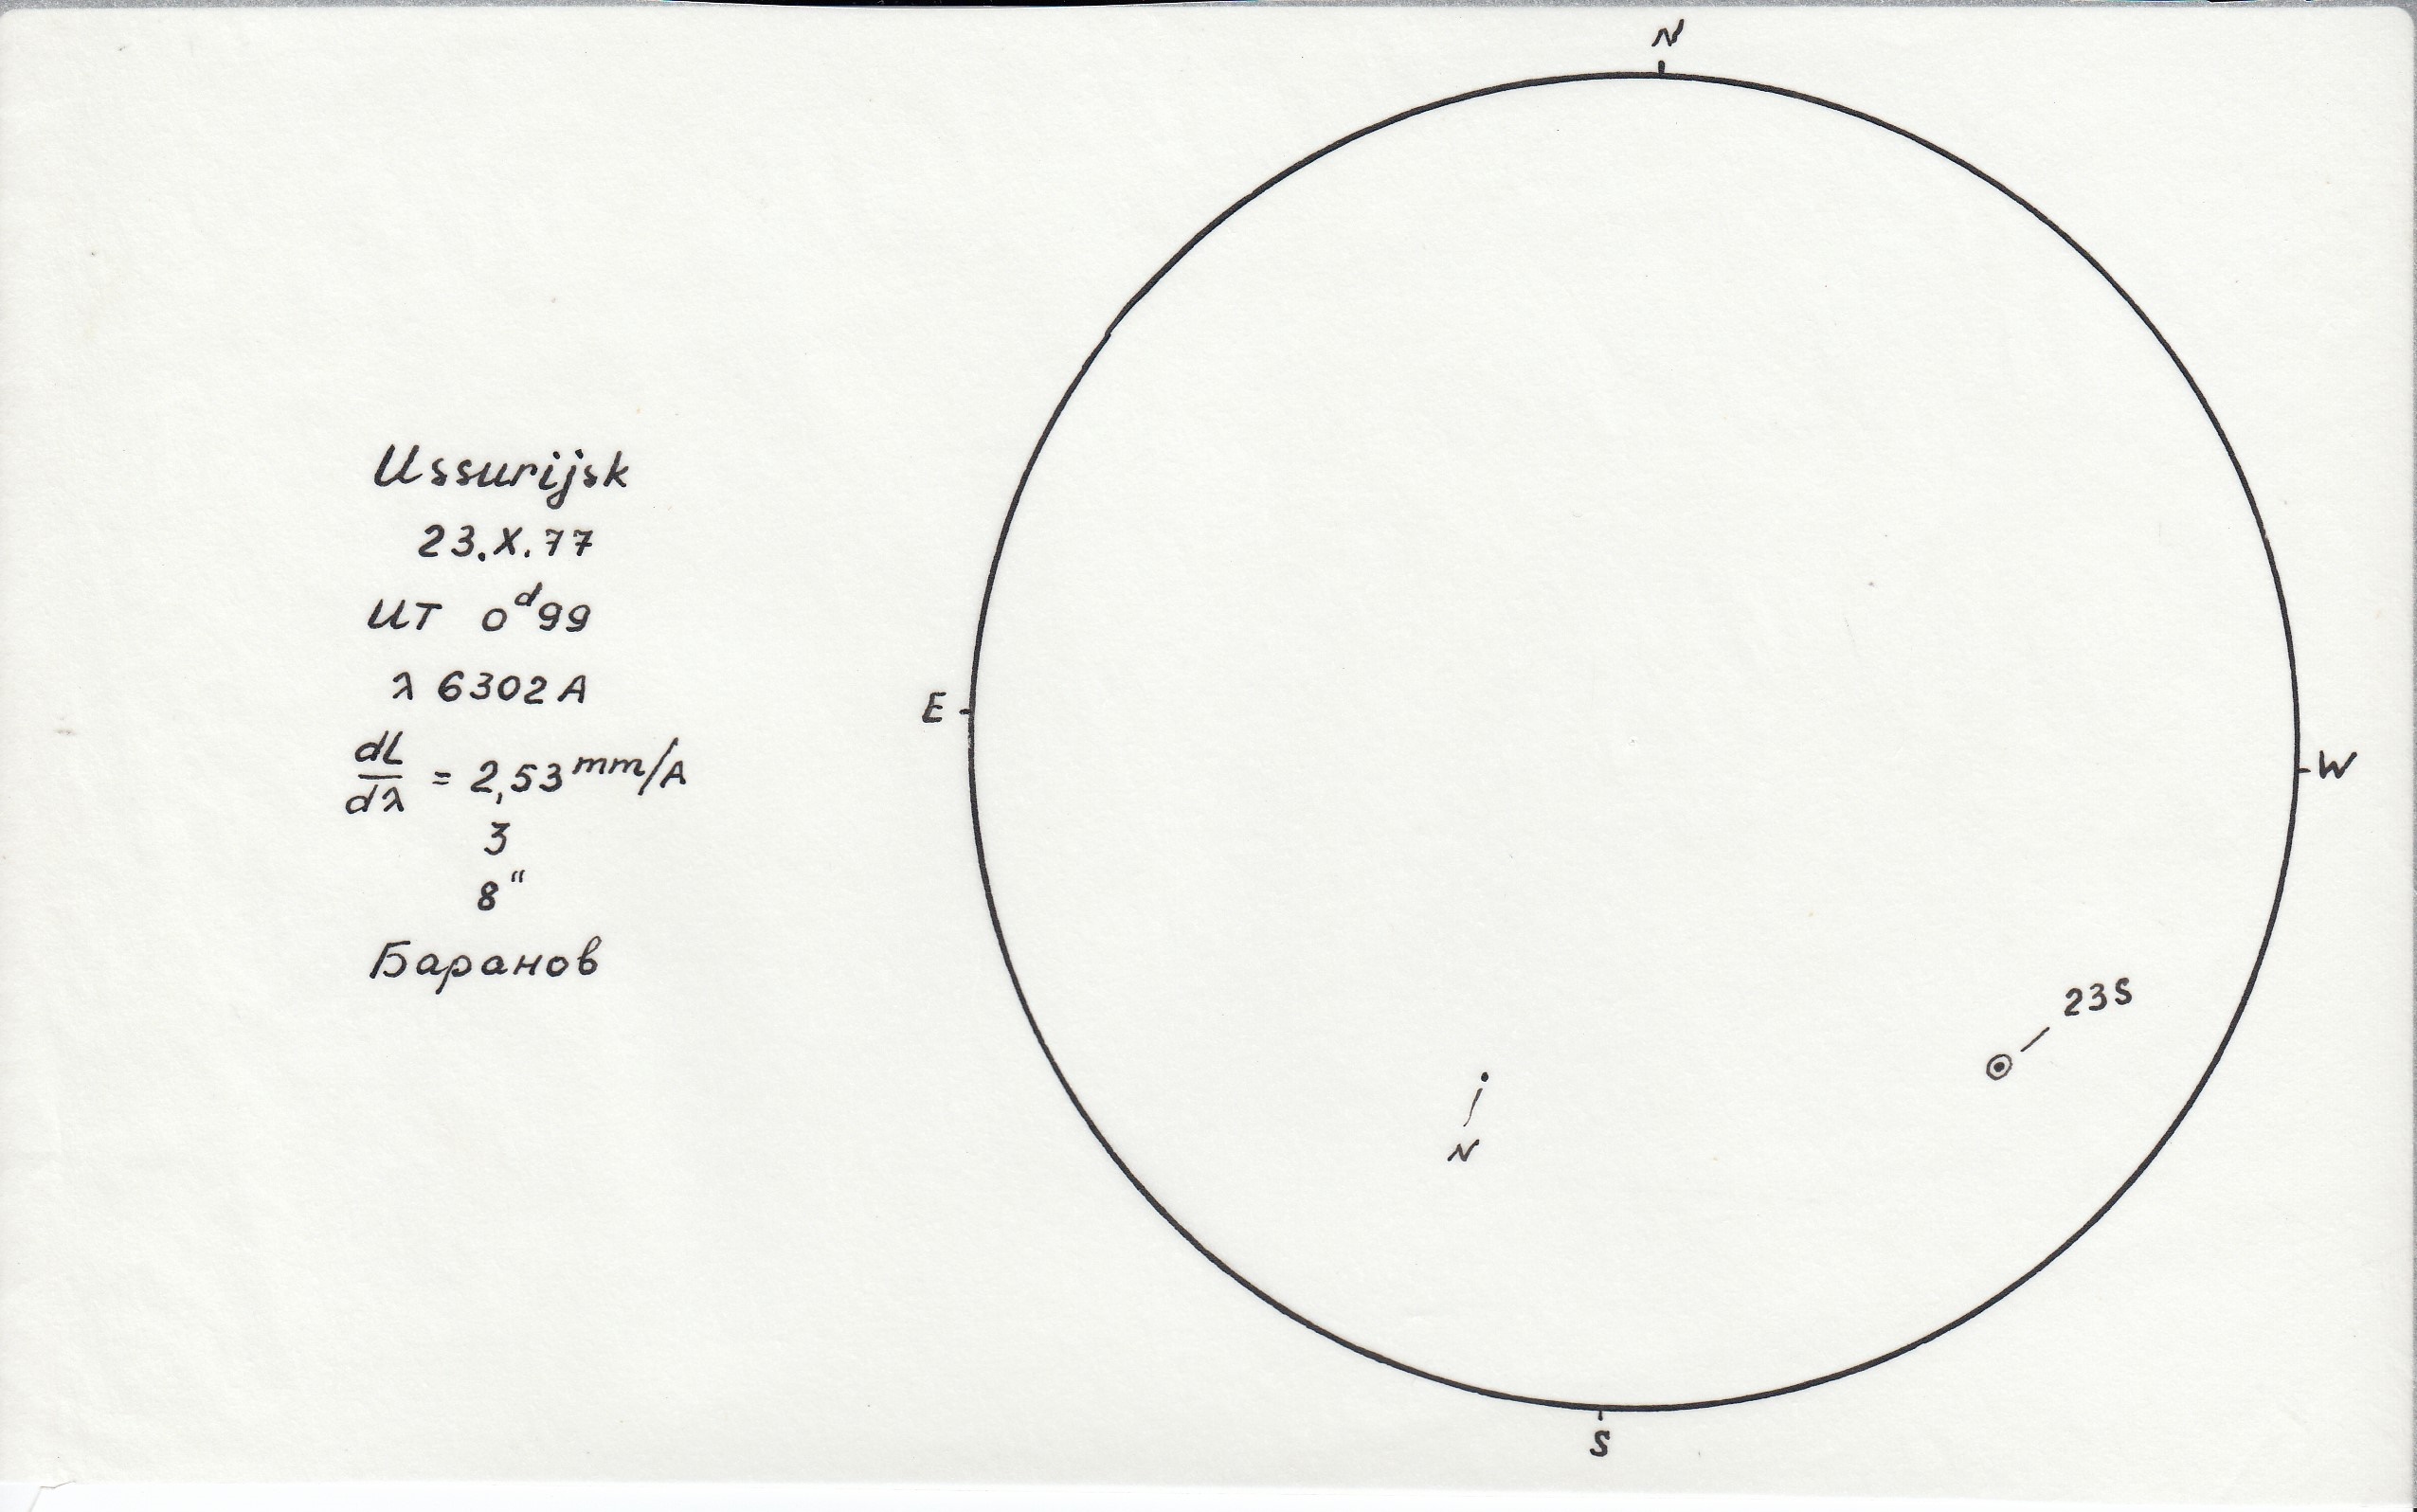 Ussurijsk
23.X.77
UT 0ᵈ99
λ 6302A
dL/dλ = 2,53 mm/A
3
8"
Баранов
N
E
W
23S
N
S